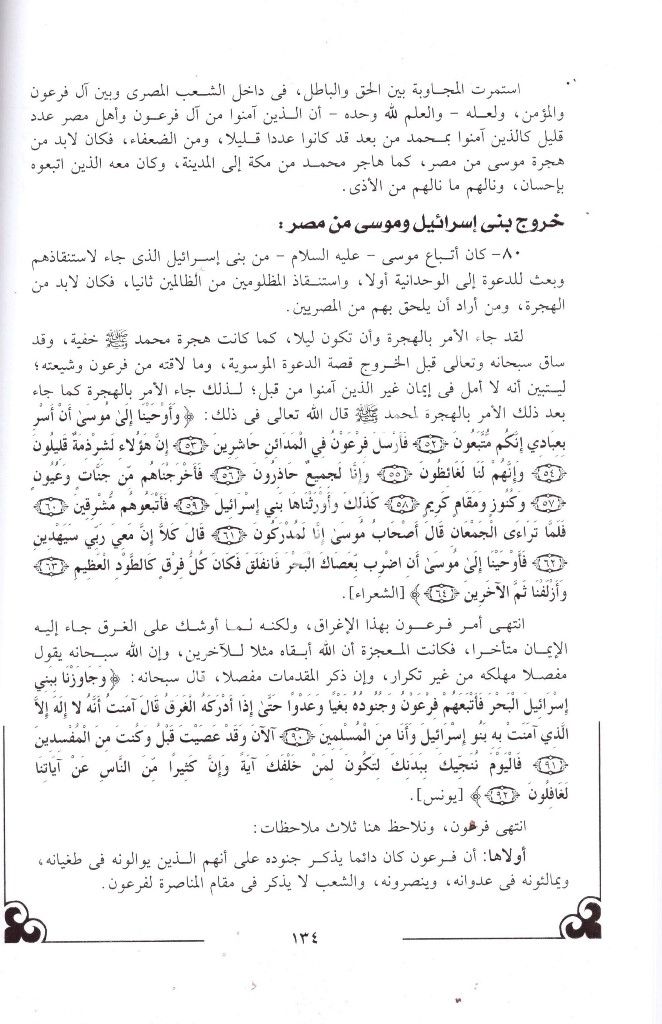 استمرت المجاوبة بين الحق والباطل، فى داخل الشعب المصرى وبين آل فرعون
والمؤمن، ولعله - والعلم لله وحده - أن الذين آمنوا من آل فرعون وأهل مصر عدد
قليل كالذين آمنوا بمحمد من بعد قد كانوا عددا قليلا، ومن الضعفاء، فكان لابد من
هجرة موسى من مصر، كما هاجر محمد من مكة إلى المدينة، وكان معه الذين اتبعوه
بإحسان، ونالهم ما نالهم من الأذى.
خروج بنى إسرائيل وموسى من مصر :
٨٠- كان أتباع موسى - عليه السلام - من بنى إسرائيل الذى جاء لاستنقاذهم
وبعث للدعوة إلى الوحدانية أولا، واستنقاذ المظلومين من الظالمين ثانيا، فكان لابد من
الهجرة، ومن أراد أن يلحق بهم من المصريين.
لقد جاء الأمر بالهجرة وأن تكون ليلا، كما كانت هجرة محمد ﷺ خفية، وقد
ساق سبحانه وتعالى قبل الخروج قصة الدعوة الموسوية، وما لاقته من فرعون وشيعته؛
ليتبين أنه لا أمل فى إيمان غير الذين آمنوا من قبل؛ لذلك جاء الأمر بالهجرة كما جاء
بعد ذلك الأمر بالهجرة لمحمد ﷺ قال الله تعالى فى ذلك: ﴿ وَأَوْحَيْنَا إِلَىٰ مُوسَىٰ أَنْ أَسْرِ
بِعِبَادِي إِنَّكُم مُّتَّبَعُونَ ﴿٥٢﴾ فَأَرْسَلَ فِرْعَوْنُ فِي الْمَدَائِنِ حَاشِرِينَ ﴿٥٣﴾ إِنَّ هَؤُلاءِ لَشِرْذِمَةٌ قَلِيلُونَ
﴿٥٤﴾ وَإِنَّهُمْ لَنَا لَغَائِظُونَ ﴿٥٥﴾ وَإِنَّا لَجَمِيعٌ حَاذِرُونَ ﴿٥٦﴾ فَأَخْرَجْنَاهُم مِّن جَنَّاتٍ وَعُيُونٍ
﴿٥٧﴾ وَكُنُوزٍ وَمَقَامٍ كَرِيمٍ ﴿٥٨﴾ كَذَلِكَ وَأَوْرَثْنَاهَا بَنِي إِسْرَائِيلَ ﴿٥٩﴾ فَأَتْبَعُوهُم مُّشْرِقِينَ ﴿٦٠﴾
فَلَمَّا تَرَاءَى الْجَمْعَانِ قَالَ أَصْحَابُ مُوسَىٰ إِنَّا لَمُدْرَكُونَ ﴿٦١﴾ قَالَ كَلاَّ إِنَّ مَعِيَ رَبِّي سَيَهْدِينِ
﴿٦٢﴾ فَأَوْحَيْنَا إِلَىٰ مُوسَىٰ أَنِ اضْرِب بِّعَصَاكَ الْبَحْرَ فَانفَلَقَ فَكَانَ كُلُّ فِرْقٍ كَالطَّوْدِ الْعَظِيمِ ﴿٦٣﴾
وَأَزْلَفْنَا ثَمَّ الآخَرِينَ ﴿٦٤﴾ ﴾ [الشعراء].
انتهى أمر فرعون بهذا الإغراق، ولكنه لما أوشك على الغرق جاء إليه
الإيمان متأخرا، فكانت المعجزة أن الله أبقاه مثلا للآخرين، وإن الله سبحانه يقول
مفصلا مهلكه من غير تكرار، وإن ذكر المقدمات مفصلا، قال سبحانه: ﴿ وَجَاوَزْنَا بِبَنِي
إِسْرَائِيلَ الْبَحْرَ فَأَتْبَعَهُمْ فِرْعَوْنُ وَجُنُودُهُ بَغْيًا وَعَدْوًا حَتَّىٰ إِذَا أَدْرَكَهُ الْغَرَقُ قَالَ آمَنتُ أَنَّهُ لا إِلَهَ إِلاَّ
الَّذِي آمَنَتْ بِهِ بَنُو إِسْرَائِيلَ وَأَنَا مِنَ الْمُسْلِمِينَ ﴿٩٠﴾ آلآنَ وَقَدْ عَصَيْتَ قَبْلُ وَكُنتَ مِنَ الْمُفْسِدِينَ
﴿٩١﴾ فَالْيَوْمَ نُنَجِّيكَ بِبَدَنِكَ لِتَكُونَ لِمَنْ خَلْفَكَ آيَةً وَإِنَّ كَثِيرًا مِّنَ النَّاسِ عَنْ آيَاتِنَا
لَغَافِلُونَ ﴿٩٢﴾ ﴾ [يونس].
انتهى فرعون، ونلاحظ هنا ثلاث ملاحظات:
أولاها: أن فرعون كان دائما يذكر جنوده على أنهم الذين يوالونه فى طغيانه،
ويمالئونه فى عدوانه، وينصرونه، والشعب لا يذكر فى مقام المناصرة لفرعون.
١٣٤